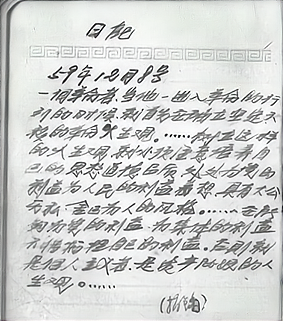 日記
59年12月8号
一個革命者,当他一进入革命的行
列的时候,就首先要确立坚定不
移的革命人生观。……树立这样
的人生观,就必须注意培养自
己的思想道德品质,处处为党的
利益,为人民的利益着想,具有大公
无私,舍己为人的风格。……要能
为党的利益,为集体的利益
不惜牺牲自己的利益。否则就
是个人主义者,是资产阶级的人
生观。……
(摘自)